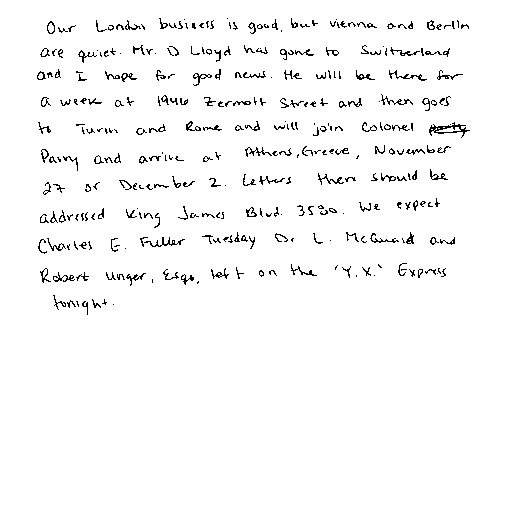 Our London business is good, but Vienna and Berlin
are quiet. Mr. D Lloyd has gone to Switzerland
and I hope for good news. He will be there for
a week at 1946 Zermott Street and then goes
to Turin and Rome and will join Colonel
Parry and arrive at Athens, Greece, November
27 or December 2. Letters there should be
addressed King James Blvd. 3580. We expect
Charles E. Fuller Tuesday Dr. L. McQuaid and
Robert Unger, Esqo, left on the 'Y.X.' Express
tonight.